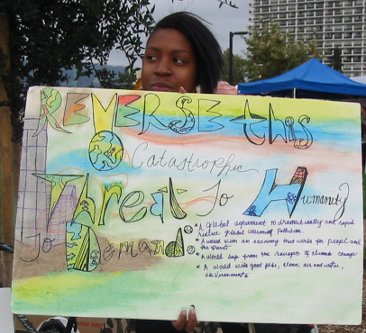 REVERSE this
Catastrophic
Threat to Humanity
to Demand:
* A global agreement to dramatically and rapidly
reduce global warming pollution
* A world with an economy that works for people and
the planet
* A world safe from the ravages of climate change
* A world with good jobs, clean air and water,
environments